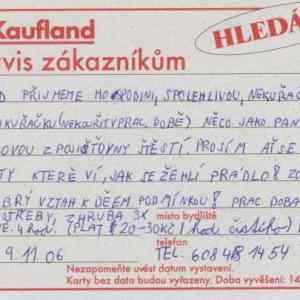 Kaufland
HLEDÁ
vis zákazníkům
D PŘIJMEME HOSPODINI, SPOLEHLIVOU, NEKUŘAČ
KUŘAČKU (NEKOUŘIT V PRAC. DOBĚ) NĚCO JAKO PAN
OVOU Z POJIŠŤOVNY ŠTĚSTÍ. PROSÍM AŤ SE
TY KTERÉ VÍ, JAK SE ŽEHLÍ PRÁDLO! ZO
BRÝ VZTAH K DĚEM PODMÍNKOU! PRAC. DOBA
STŘEBY, ZHRUBA 3X místo bydliště
4 hod. (PLAT 20-30Kč 1 hod. čistého)
9.11.06 telefon TEL. 608 48 14 54
Nezapomeňte uvést datum vystavení.
Karty bez data budou vyřazeny. Doba vyvěšení: 14